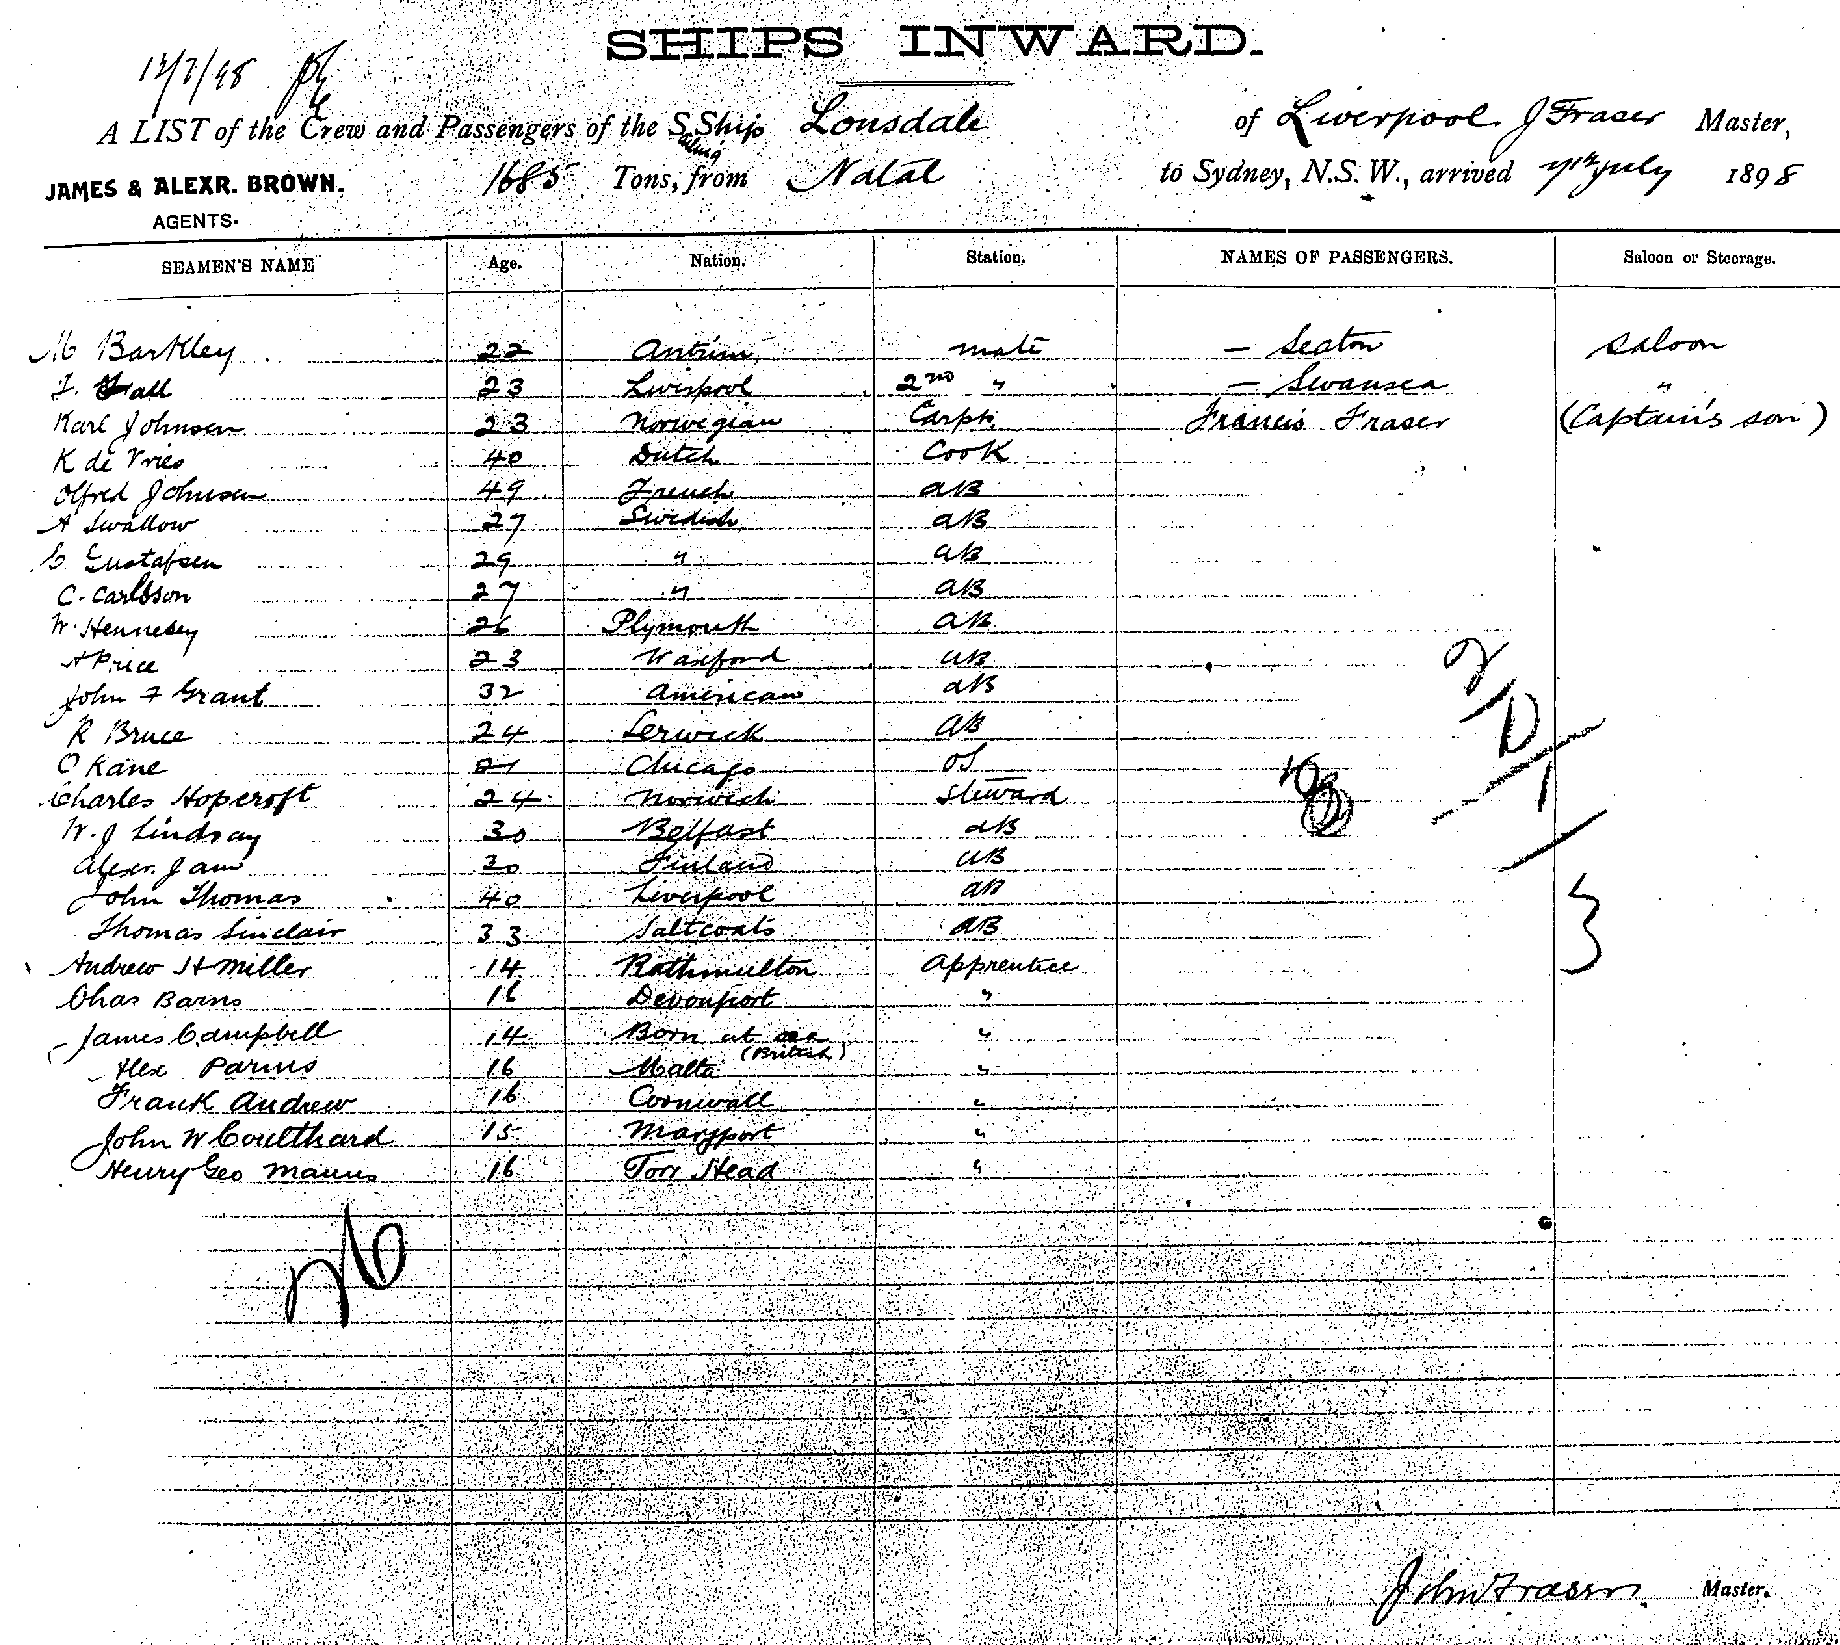 SHIPS INWARD.
12/7/98
A LIST of the Crew and Passengers of the S. Ship Lonsdale of Liverpool J Fraser Master,
JAMES & ALEXR. BROWN. 1685 Tons, from Natal to Sydney, N.S.W., arrived July 1898
AGENTS.
SEAMEN'S NAME Age. Nation. Station. NAMES OF PASSENGERS. Saloon or Steerage.
M Barkley 22 Antrim mate – Seaton Saloon
23 Liverpool 2nd " – Swansea "
Karl Johnsen 23 Norwegian Carptr Francis Fraser (Captain's son)
K de Vries 40 Dutch Cook
Olfred Johnsen 49 French AB
A Swallow 27 Swedish AB
Gustafsen 29 " AB
C. Carlsson 27 " AB
W. Hennesey 26 Plymouth AB
A Price 23 Waxford AB
John F Grant 32 American AB
R Bruce 24 Lerwick AB
O Kane 21 Chicago OS
Charles Hopcroft 24 Norwich Steward
W. J Lindsay 30 Belfast AB
Alexr. 30 Finland AB
John Thomas 40 Liverpool AB
Thomas Sinclair 33 Saltcoats AB
Andrew H Miller 14 Rathmulton Apprentice
Chas Barns 16 Devonport "
James Campbell 14 Born at sea "
(British)
Alex 16 Malta "
Frank Andrew 16 Cornwall "
John W Coulthard 15 Maryport "
Henry Geo Manns 16 Torr Head "
26
2
1
3
John Fraser Master.